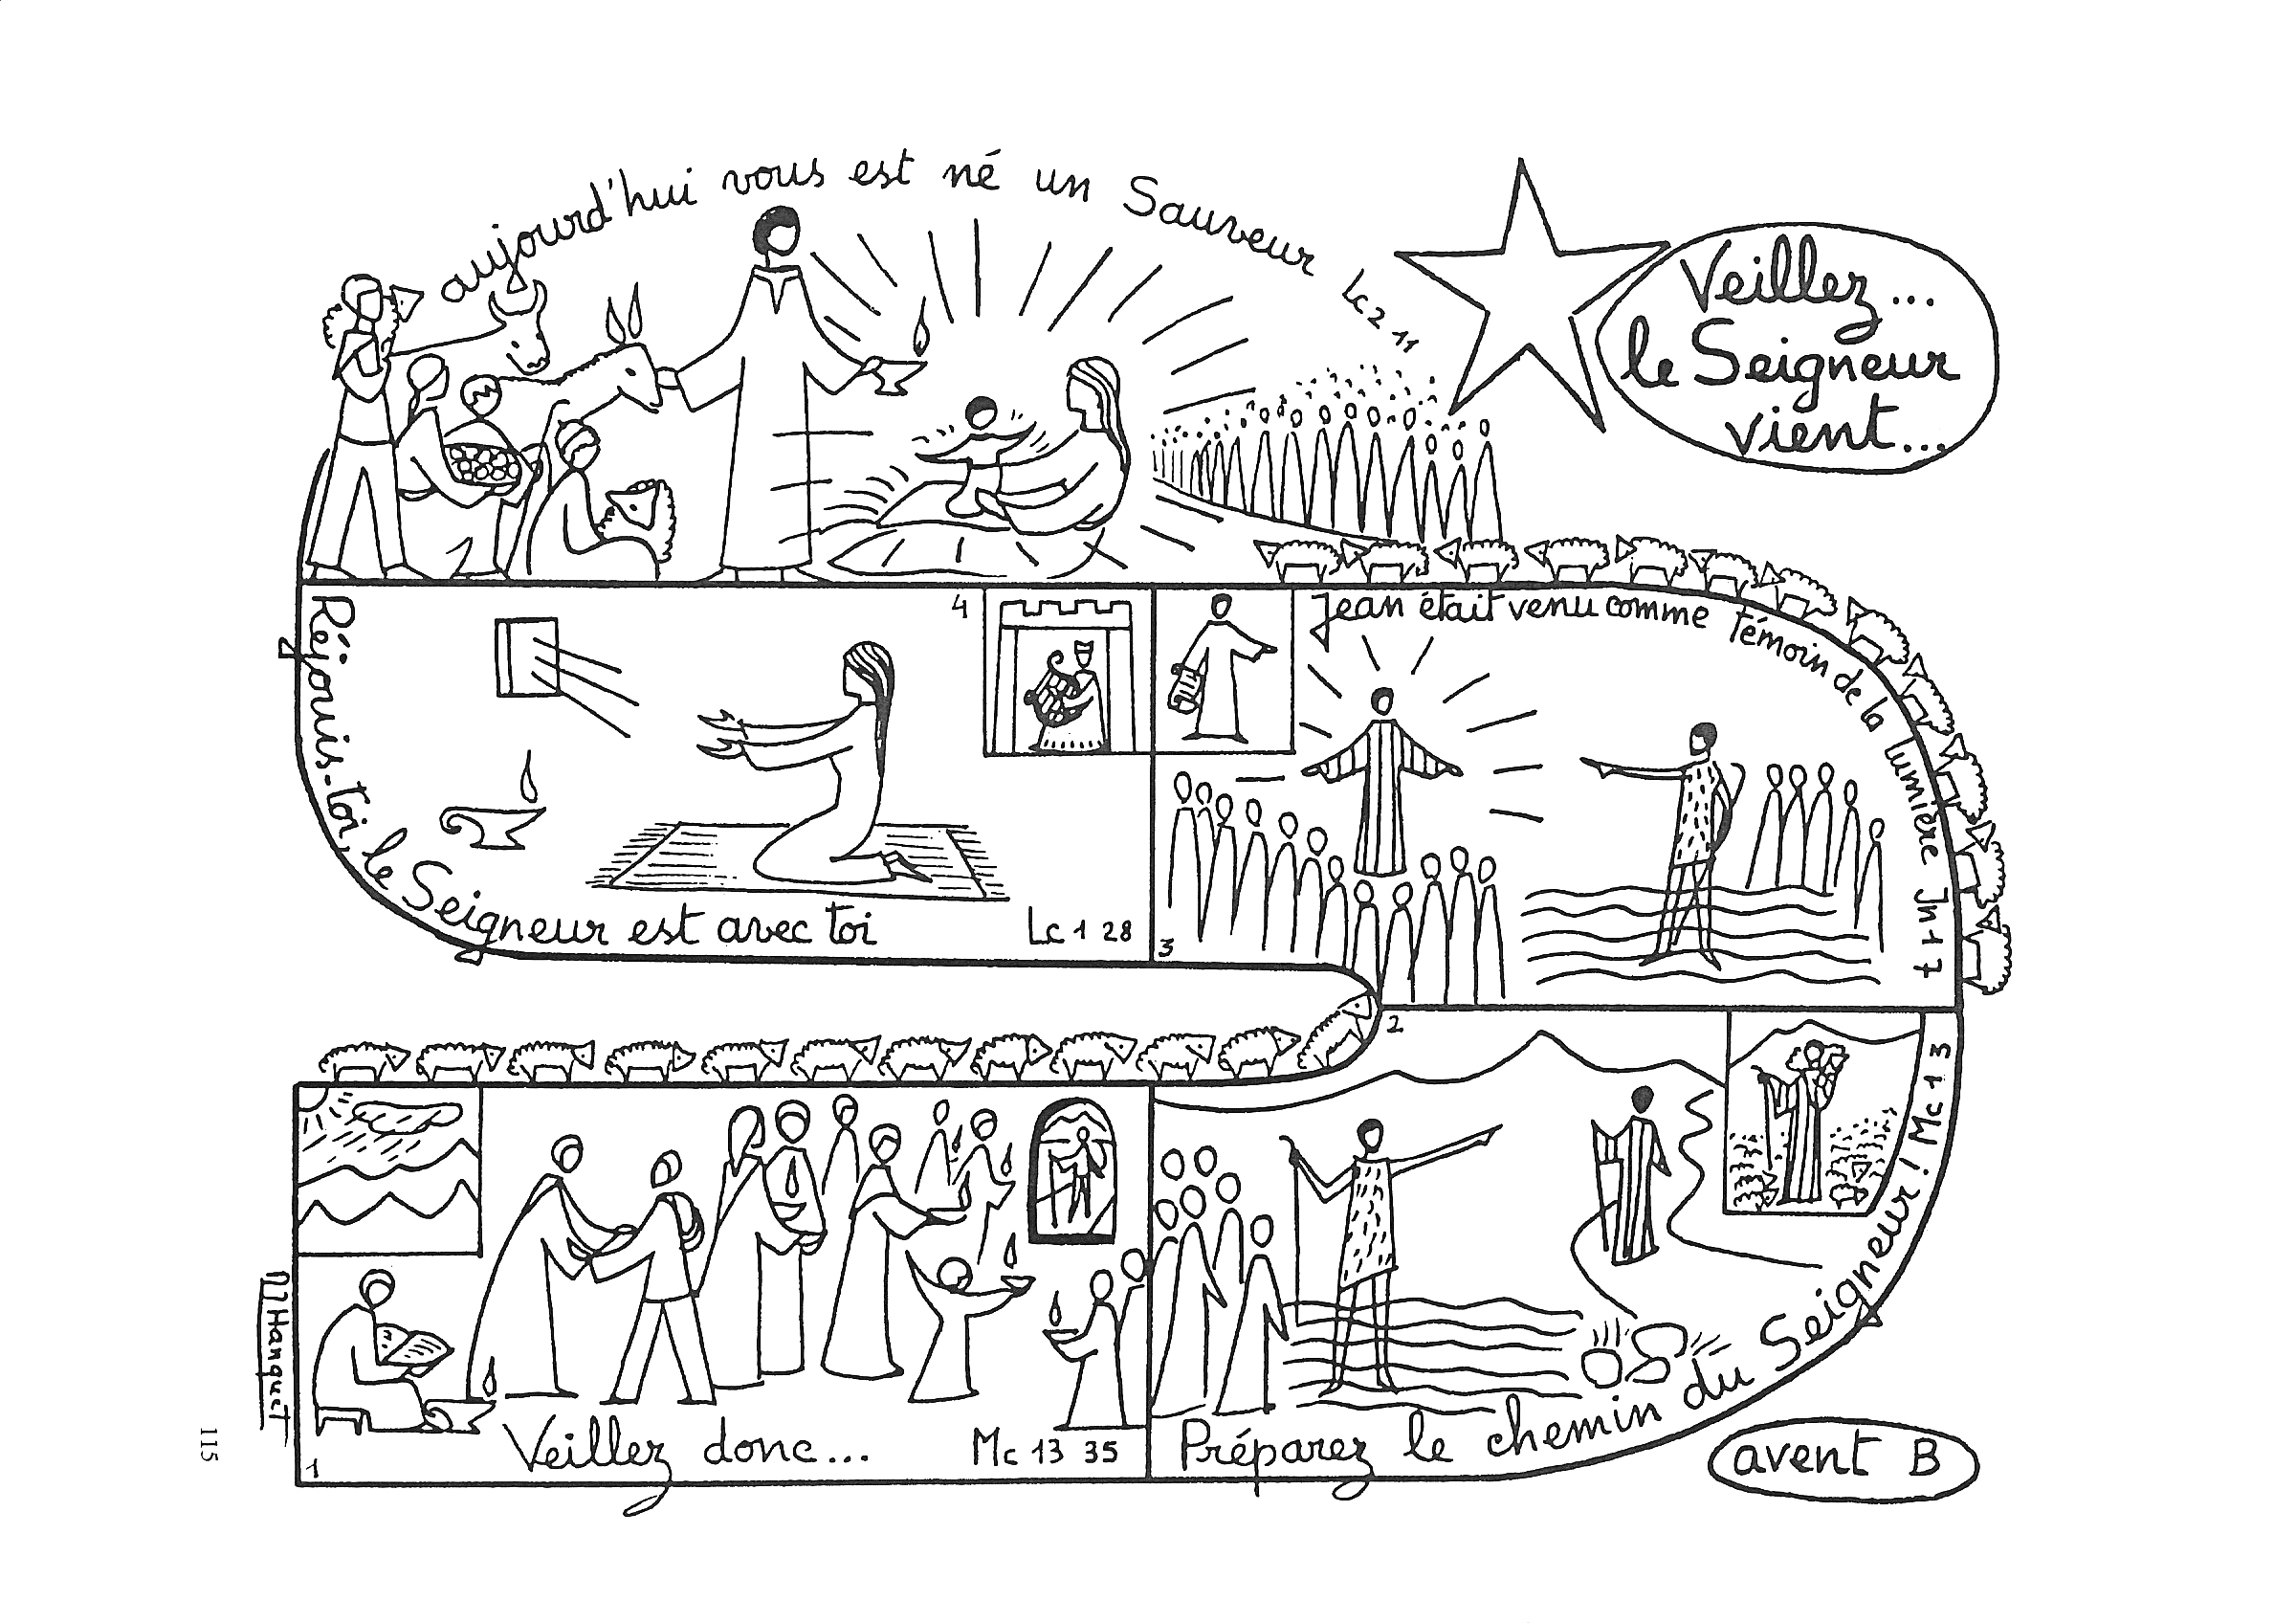 aujourd'hui vous est né un Sauveur Lc 2 11
Veillez...
le Seigneur
vient...
4
Réjouis-toi, le Seigneur est avec toi Lc 1 28
Jean était venu comme témoin de la lumière Jn 1 7
3
2
Préparez le chemin du Seigneur ! Mc 1 3
1
Veillez donc... Mc 13 35
avent B
MHanquet
115